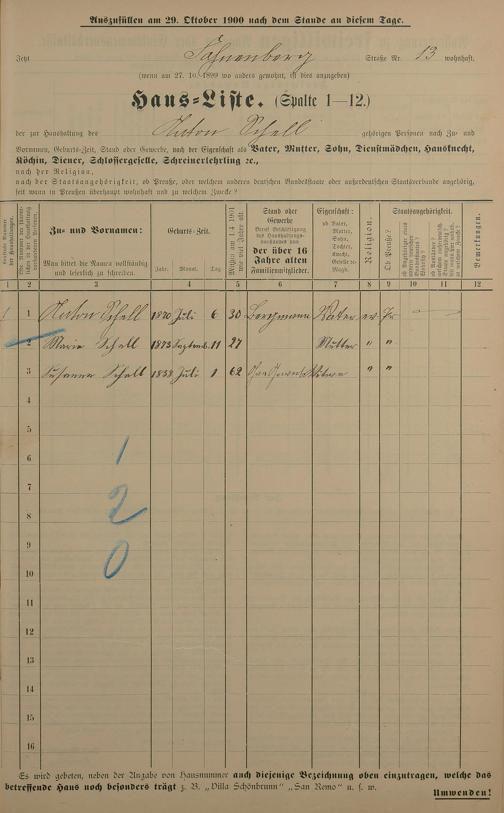 Auszufüllen am 29. Oktober 1900 nach dem Stande an diesem Tage.
Jetzt Straße Nr. 13 wohnhaft.
(wenn am 27. 10. 1899 wo anders gewohnt, ist dies anzugeben)
Haus-Liste. (Spalte 1—12.)
der zur Haushaltung des Anton Schell gehörigen Personen nach Zu- und
Vornamen, Geburts-Zeit, Stand oder Gewerbe, nach der Eigenschaft als Vater, Mutter, Sohn, Dienstmädchen, Hausknecht,
Köchin, Diener, Schlossergeselle, Schreinerlehrling ꝛc.,
nach der Religion,
nach der Staatsangehörigkeit, ob Preuße, oder welchem anderen deutschen Bundesstaate oder außerdeutschen Staatsverbande angehörig,
seit wann in Preußen überhaupt wohnhaft und zu welchem Zwecke?
Zu- und Vornamen:
Man bittet die Namen vollständig und leserlich zu schreiben.
Geburts-Zeit.
Jahr. Monat. Tag
Stand oder Gewerbe
der über 16 Jahre alten Familienmitglieder.
Eigenschaft:
ob Vater, Mutter, Sohn, Tochter, Knecht, Geselle oder Magd.
Religion.
Ob Preuße?
Staatsangehörigkeit.
Bemerkungen.
1 2 3 4 5 6 7 8 9 10 11 12
1 1 Anton Schell 1870 Juli 6 30 Bergmann Vater ev. Pr
2 Maria Schell 1873 Septemb. 11 27 Mutter " "
3 Susanna Schell 1838 Juli 1 62 Witwe " "
4
5
6 1
7
8 2
9
10 0
11
12
13
14
15
16
Es wird gebeten, neben der Angabe von Hausnummer auch diejenige Bezeichnung oben einzutragen, welche das
betreffende Haus noch besonders trägt z. B. „Villa Schönbrunn" „San Remo" u. s. w.
Umwenden!